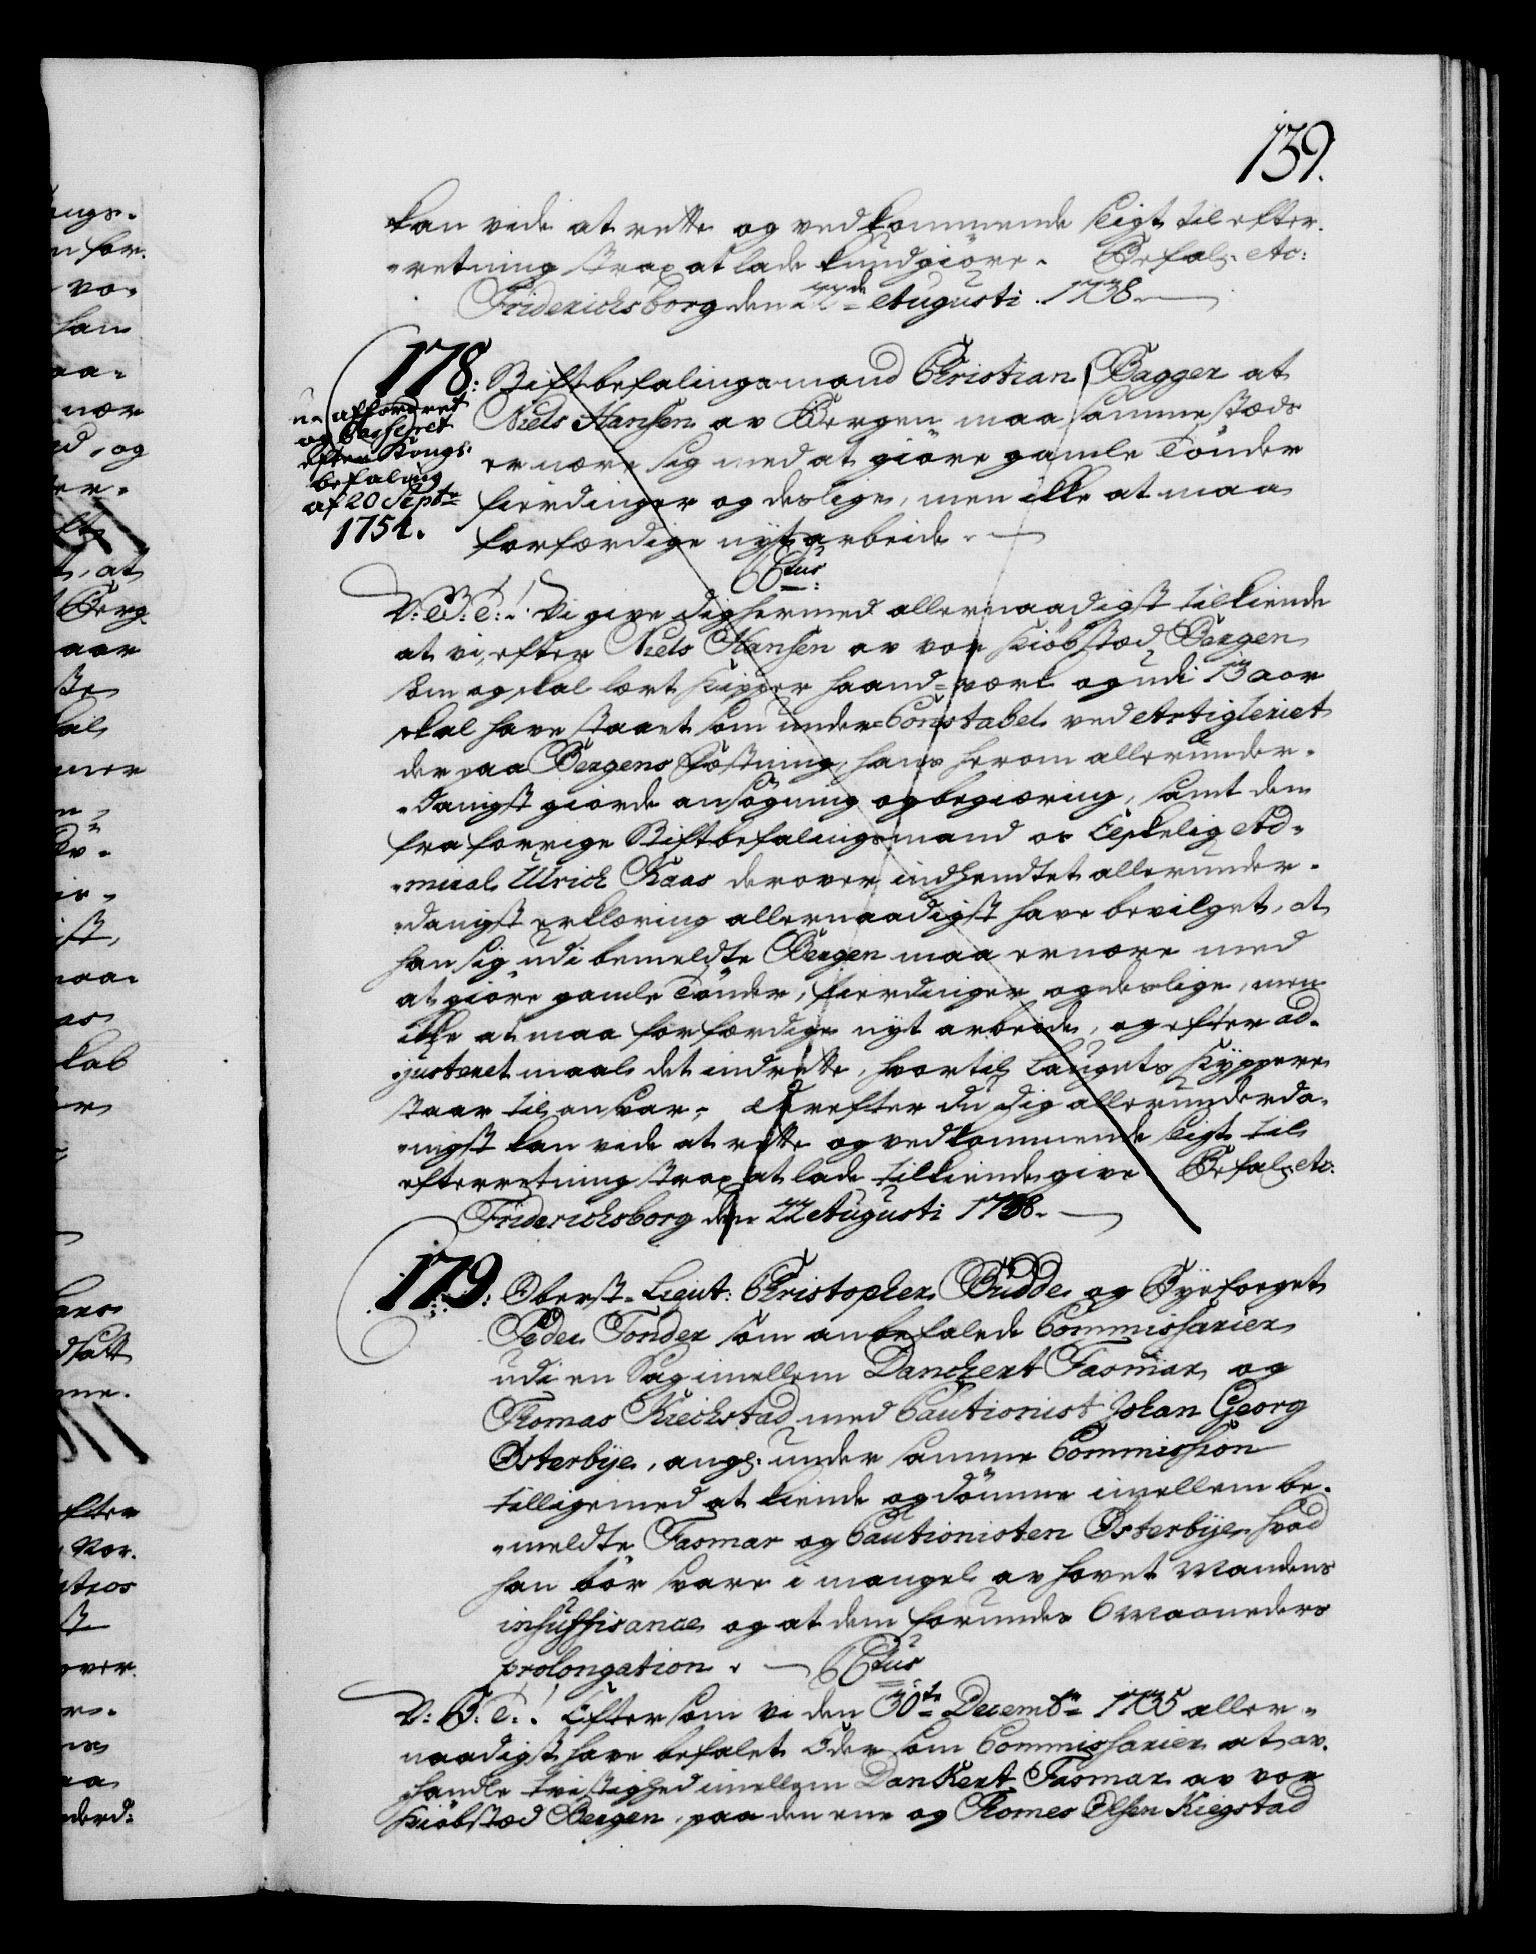 139.
kan vide at rette og vedkommende sligt til efter-
-retning strax at lade kundgiöre. Befal. etc:
Friderichsborg den 22de Augusti 1738.
178: Stiftbefalingsmand Christian Bagger at
Niels Hansen av Bergen maa sammestæds
ernære sig med at giöre gamle Tönder
fierdinger og deslige, men ikke at maa
forfærdige nyt arbeide.
afforderet
og Casseret
efter Kongl.
befaling
af 20 Septr
1754.
C6tus:
V: G: T:. Vi give dig hermed allernaadigst tilkiende
at vi, efter Niels Hansen av vor Kiöbstæd Bergen
som og skal lært Kipper haand-værk og udi 13 aar
skal have staaet som under-Constabel ved Artigleriet
der paa Bergens Fæstning, hans herom allerunder-
-danigst giorde ansögning og begiæring, samt den
fra forrige Stiftbefalingsmand os Elskelig Ad-
-miral Ulrich Kaas derover indhendtet allerunder-
-danigst erklæring allernaadigst have bevilget, at
han sig udi bemeldte Bergen maa ernære med
at giöre gamle Tönder, fierdinger og deslige, men
ikke at maa forfærdige nyt arbeide, og efter ad-
-justeret maal det indrette, hvortil Laugets Kyppere
staar til ansvar; Derefter du dig allerunderda-
-nigst kan vide at rette og vedkommende sligt til
efterretning strax at lade tilkiende give Befal. etc:
Friderichsborg den 22 Augusti 1738.
179: Oberst-Lieut: Christopher Budde og Byefoget
Peder Tonder som anbefalede Commissarier
udi en Sag imellem Danchert Fasmar og
Thomas Kiechstad med Cautionist Johan Georg
Østerbye, ang. under samme Commission
tilligemed at kiende og dömme imellem be-
-meldte Fasmar og Cautionisten Østerbye, hvad
han bör svare i mangel av hovet Mandens
insuffisance og at dem forundes 6 Maaneders
prolongation. C6tus
V: G: T:. Eftersom vi den 30te Decembr 1735 aller-
naadigst have befalet Eder som Commissarier at av-
-handle tvistighed imellem Dankert Fasmar av vor
Kiöbstæd Bergen, paa den ene og Thomes Olsen Kiegstad